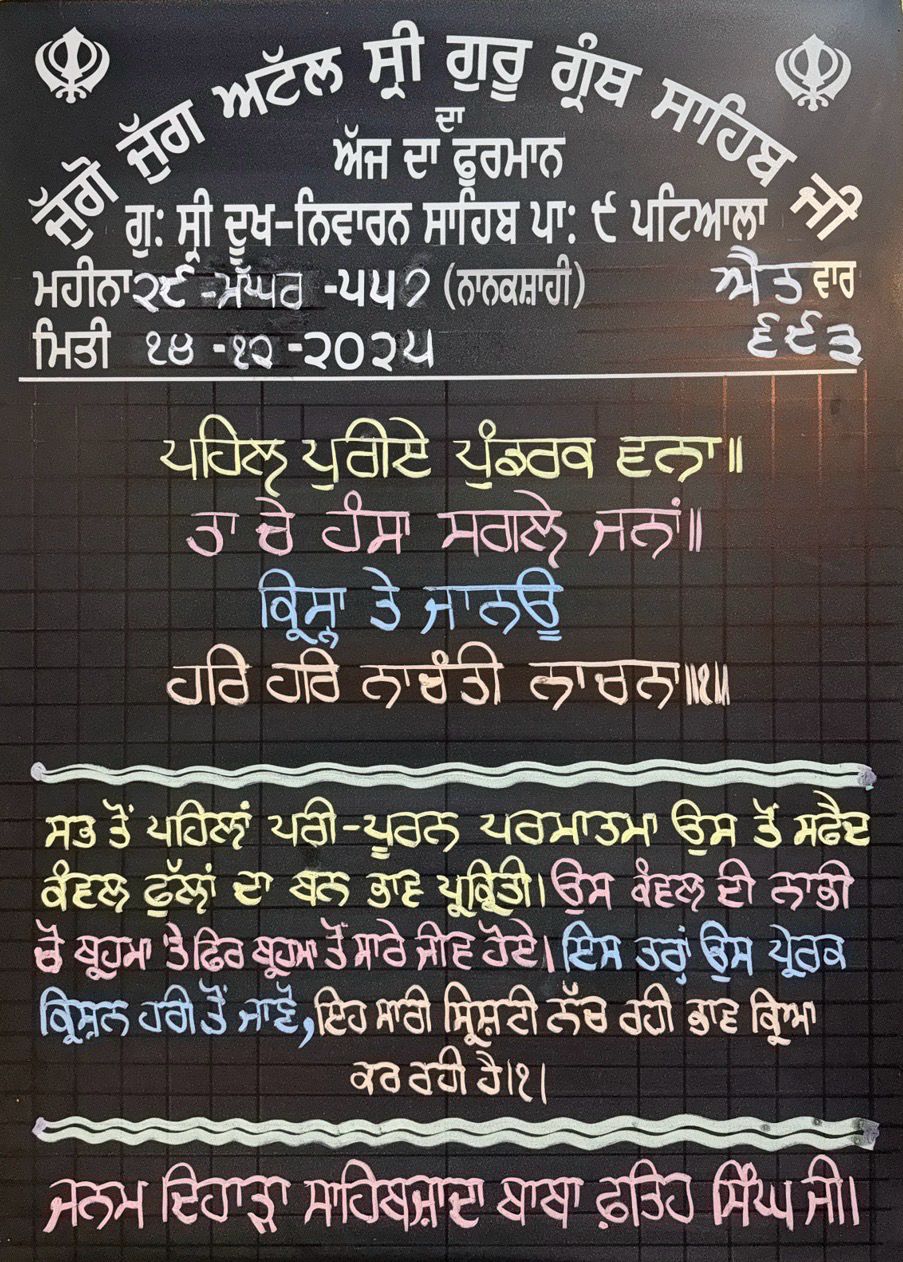 ਜੁੱਗੋ ਜੁੱਗ ਅਟੱਲ ਸ੍ਰੀ ਗੁਰੂ ਗ੍ਰੰਥ ਸਾਹਿਬ ਜੀ
ਦਾ
ਅੱਜ ਦਾ ਫੁਰਮਾਨ
ਗੁ: ਸ੍ਰੀ ਦੂਖ-ਨਿਵਾਰਨ ਸਾਹਿਬ ਪਾ: ੯ ਪਟਿਆਲਾ
ਮਹੀਨਾ ੨੯ -ਮੱਘਰ -੫੫੭ (ਨਾਨਕਸ਼ਾਹੀ) ਐਤਵਾਰ
ਮਿਤੀ ੧੪ -੧੨ -੨੦੨੫ ੬੯੩
ਪਹਿਲ ਪੁਰੀਏ ਪੁੰਡਰਕ ਵਨਾ॥
ਤਾ ਚੇ ਹੰਸਾ ਸਗਲੇ ਜਨਾਂ॥
ਕ੍ਰਿਸ੍ਨਾ ਤੇ ਜਾਨਊ
ਹਰਿ ਹਰਿ ਨਾਚੰਤੀ ਨਾਚਨਾ॥੧॥
ਸਭ ਤੋਂ ਪਹਿਲਾਂ ਪਰੀ-ਪੂਰਨ ਪਰਮਾਤਮਾ ਉਸ ਤੋਂ ਸਫੈਦ
ਕੰਵਲ ਫੁੱਲਾਂ ਦਾ ਬਨ ਭਾਵ ਪ੍ਰਕ੍ਰਿਤੀ। ਉਸ ਕੰਵਲ ਦੀ ਨਾਭੀ
ਚੋਂ ਬ੍ਰਹਮਾ ਤੈ ਫਿਰ ਬ੍ਰਹਮਾ ਤੋਂ ਸਾਰੇ ਜੀਵ ਹੋਏ। ਇਸ ਤਰ੍ਹਾਂ ਉਸ ਪ੍ਰੇਰਕ
ਕ੍ਰਿਸ਼ਨ ਹਰੀ ਤੋਂ ਜਾਣੋ, ਇਹ ਸਾਰੀ ਸ੍ਰਿਸ਼ਟੀ ਨੱਚ ਰਹੀ ਭਾਵ ਕ੍ਰਿਆ
ਕਰ ਰਹੀ ਹੈ।੧।
ਜਨਮ ਦਿਹਾੜਾ ਸਾਹਿਬਜ਼ਾਦਾ ਬਾਬਾ ਫ਼ਤਿਹ ਸਿੰਘ ਜੀ।